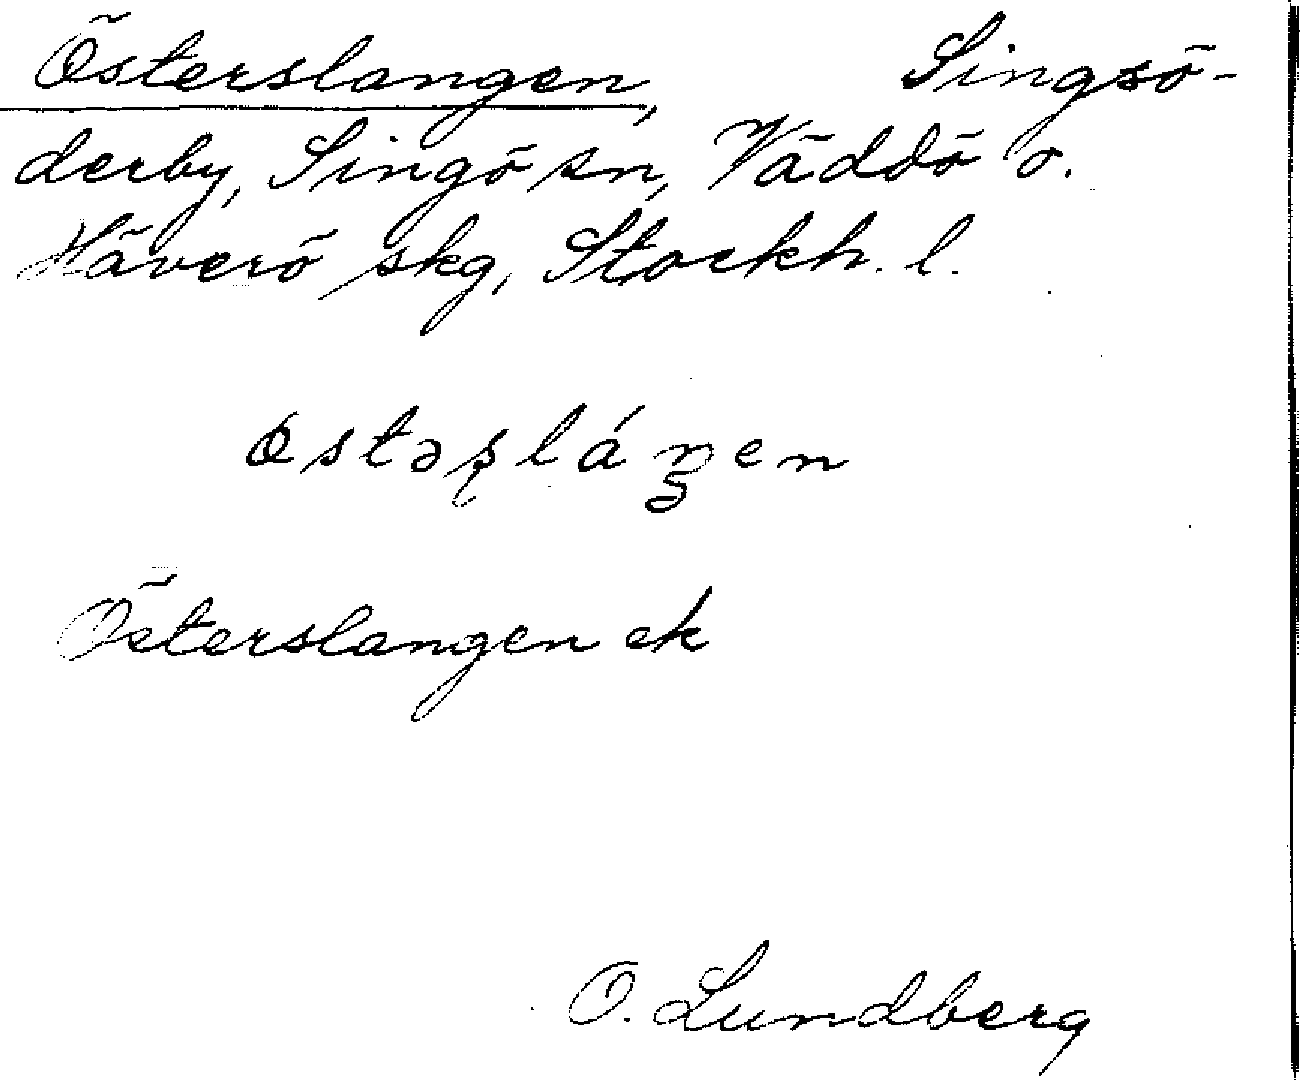 Österslangen, Singsö-
derby, Singö sn, Väddö o.
Häverö skg, Stockh. l.
Österslangen ek
O. Lundberg